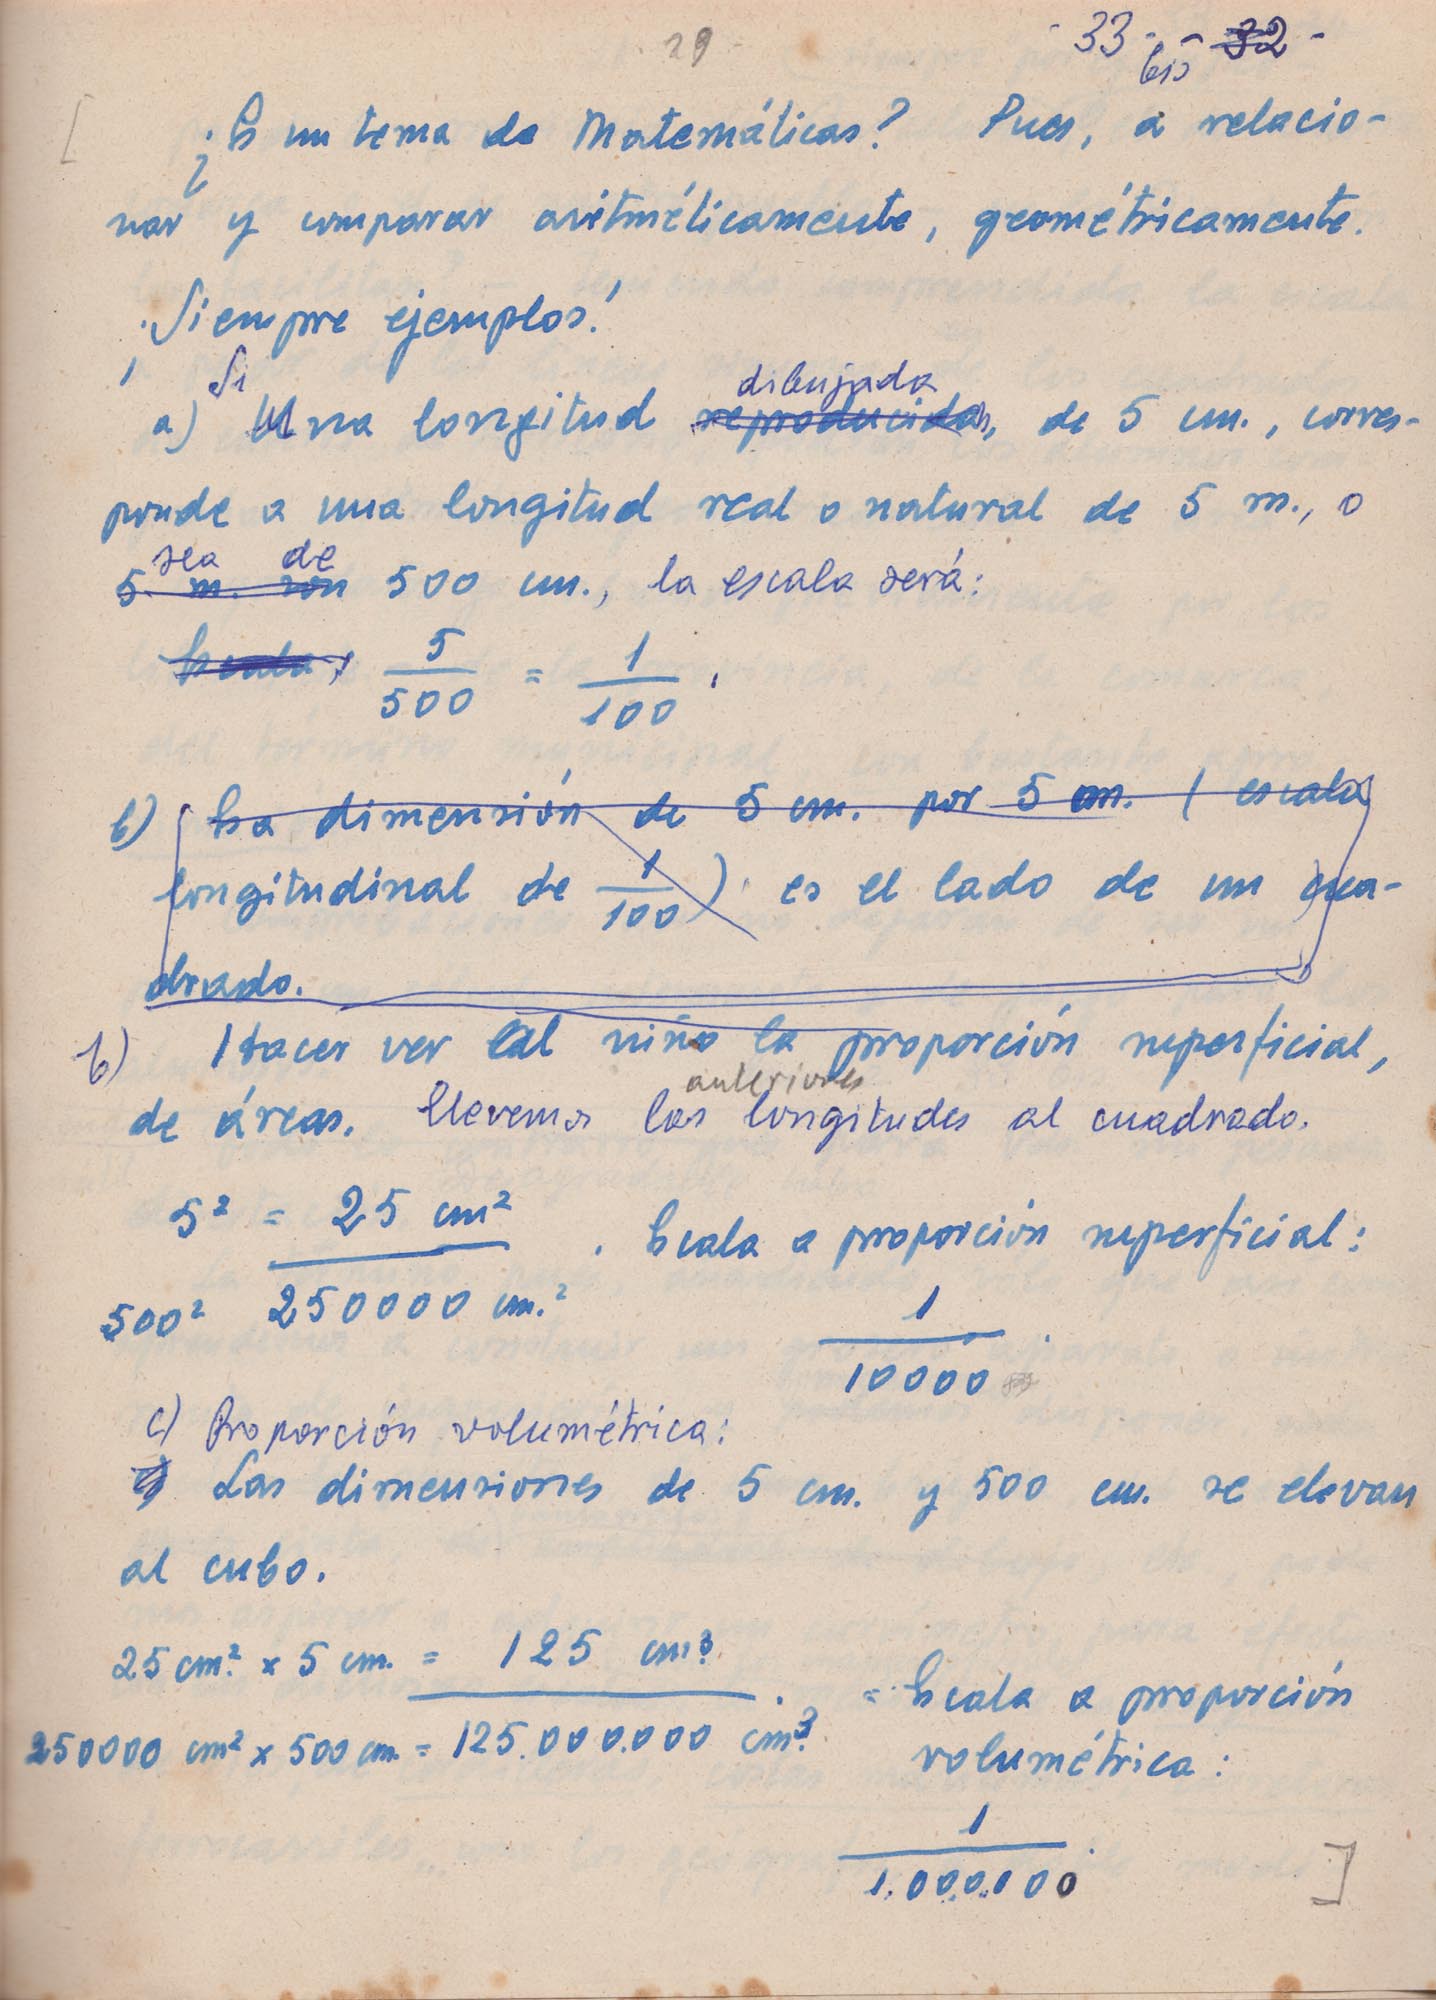 29
- 33 - - ~~32~~ -
bis
[ ¿Es un tema de Matemáticas? Pues, a relacio-
nar y comparar aritméticamente, geométricamente.
¡Siempre ejemplos!
Si dibujada
a) Una longitud ~~reproducida~~, de 5 cm., corres-
ponde a una longitud real o natural de 5 m., o
sea de
~~5 m. son~~ 500 cm., la escala será:
~~Escala,~~ 5/500 = 1/100.
b) ~~Esa dimensión de 5 cm. por 5 cm. (escala~~
~~longitudinal de 1/100) es el lado de un cua-~~
~~drado.~~
b) Hacer ver al niño la proporción superficial,
anteriores
de áreas. Llevemos las longitudes al cuadrado.
5² = 25 cm²
. Escala a proporción superficial:
500² 250000 cm.²
1/10000.
c) Proporción volumétrica:
Las dimensiones de 5 cm. y 500 cm. se elevan
al cubo.
25 cm². x 5 cm. = 125 cm³.
= Escala a proporción
250000 cm² x 500 cm. = 125.000.000 cm³.
volumétrica:
1/1.000.000. ]